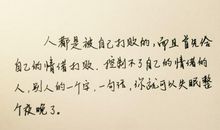 人都是被自己打败的,而且首先给
自己的情绪打败.控制不了自己的情绪的
人,别人的一个字,一句话,你就可以失眠整
个夜晚了。